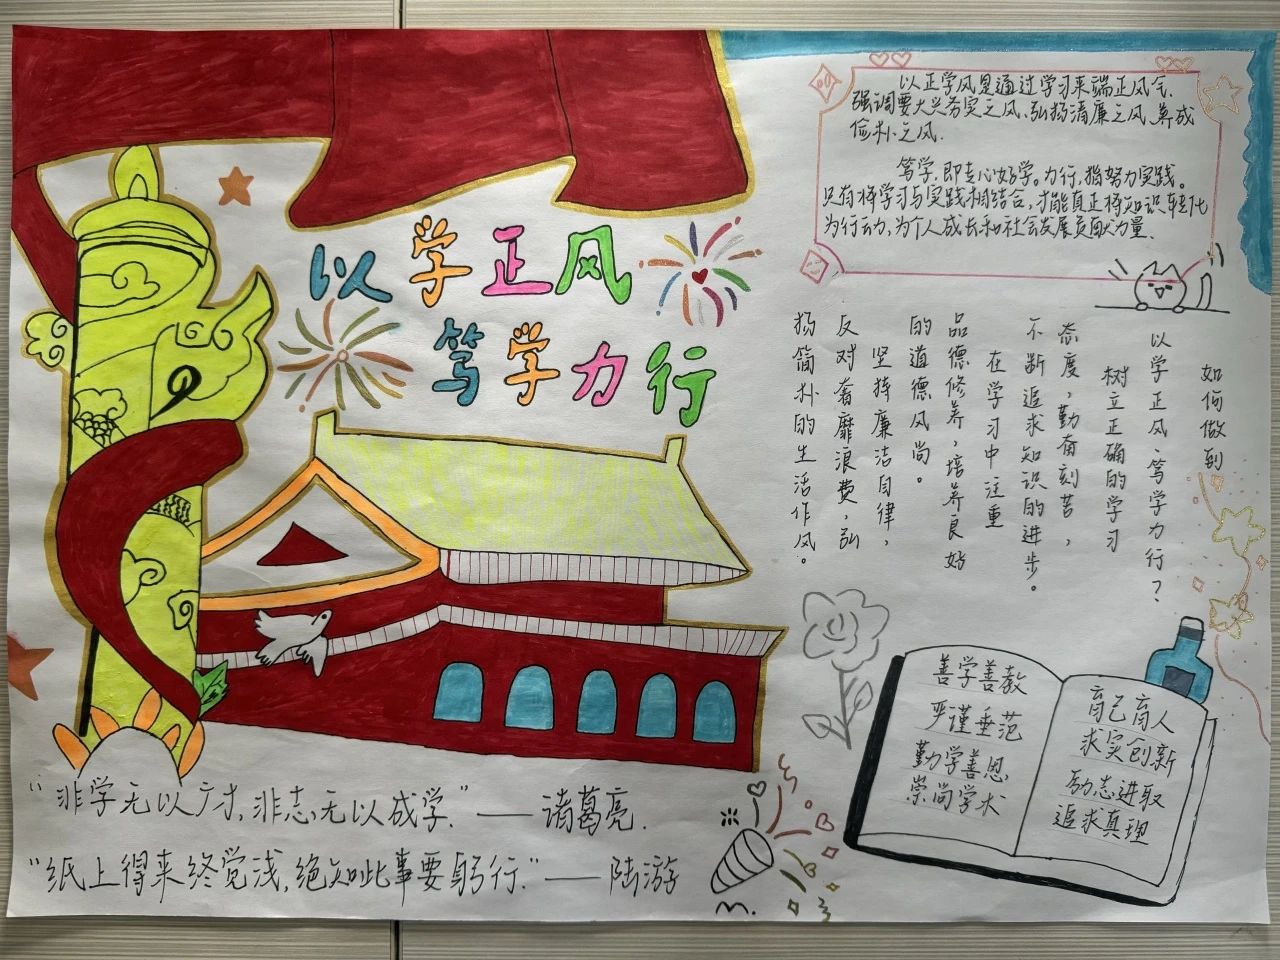 以学正风
笃学力行
以正学风是通过学习来端正风气.
强调要大兴务实之风、弘扬清廉之风、养成
俭朴之风.
笃学,即专心好学。力行,指努力实践。
只有将学习与实践相结合,才能真正将知识转化
为行动,为个人成长和社会发展贡献力量.
如何做到
以学正风、笃学力行?
树立正确的学习
态度,勤奋刻苦,
不断追求知识的进步。
在学习中注重
品德修养,培养良好
的道德风尚。
坚持廉洁自律,
反对奢靡浪费,弘
扬简朴的生活作风。
善学善教
严谨垂范
勤学善思
崇尚学术
育己育人
求实创新
励志进取
追求真理
“非学无以广才,非志无以成学.”——诸葛亮.
“纸上得来终觉浅,绝知此事要躬行.”——陆游